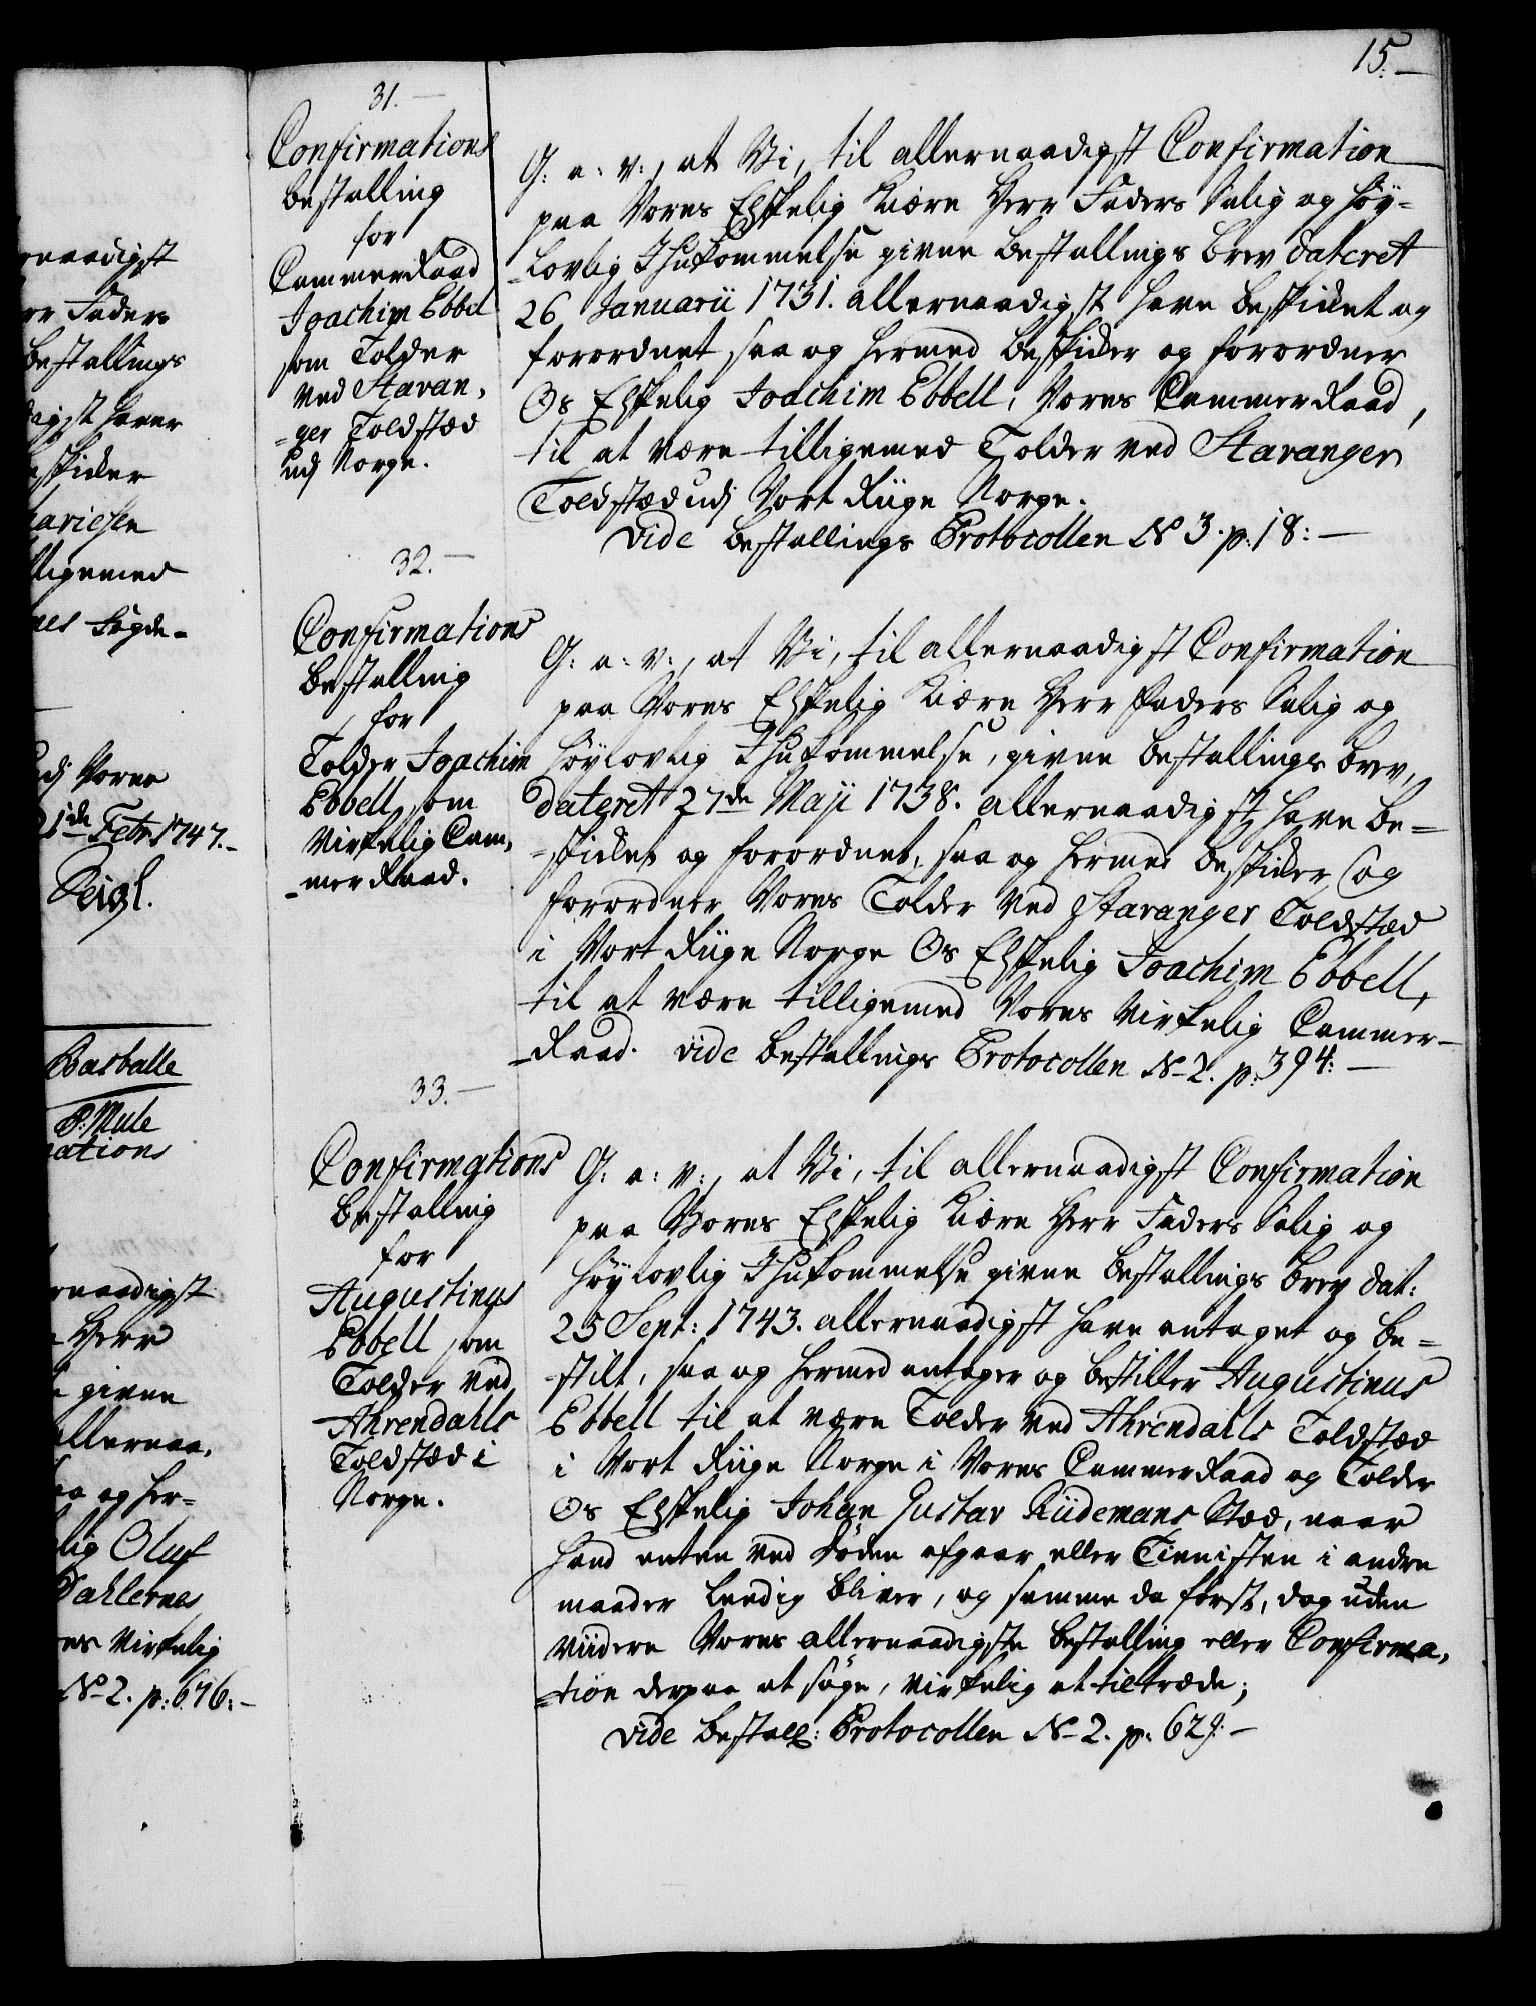 15.
31.
Confirmations
bestalling
for
CammerRaad
Joachim Ebbel
som Tolder
ved Stavan,
=ger Toldstæd
udj Norge.
G: a: v:, at Vi, til allernaadigst Confirmation
paa Vores Elskelig Kiære Herr Faders Salig og Høy=
=lovlig Ihukommelse givne bestallings brev dateret
26 Januarii 1731. allernaadigst have beskikket og
forordnet, saa og hermed beskikker og forordner
Os Elskelig Joachim Ebbell, Vores CammerRaad,
til at være tilligemed Tolder ved Stavanger
Toldstæd udj Vort Riige Norge.
vide bestallings Protocollen N 3. p: 18:
32.
Confirmations
bestalling
for
Tolder Joachim
Ebbell, som
Virkelig Cam,
=mer Raad.
G: a: v:, at Vi, til allernaadigst Confirmation
paa Vores Elskelig Kiære Herr Faders Salig og
Høylovlig Ihukommelse, givne bestallings brev,
dateret 27de Maji 1738. allernaadigst have be=
=skikket og forordnet, saa og hermed beskikker og
forordner Vores Tolder ved Stavanger Toldstæd
i Vort Riige Norge Os Elskelig Joachim Ebbell,
til at være tilligemed Vores Virkelig Cammer=
=Raad. vide bestallings Protocollen N 2. p: 394:
33.
Confirmations
bestalling
for
Augustinus
Ebbell, som
Tolder ved
Ahrendahls
Toldstæd i
Norge.
G: a: v:, at Vi, til allernaadigst Confirmation
paa Vores Elskelig Kiære Herr Faders Salig og
Høylovlig Ihukommelse givne bestallings brev dat:
25 Sept: 1743. allernaadigst have antaget og be=
=stilt, saa og hermed antager og bestiller Augustinus
Ebbell til at være Tolder ved Ahrendalls Toldstæd
i Vort Riige Norge i Vores CammerRaad og Tolder
Os Elskelig Johan Gustav Riidemans Stæd, naar
hand enten ved Døden afgaar eller Tienisten i andre
maader leedig bliver, og samme da først, dog uden
viidere Vores allernaadigste bestalling eller Confirma,
=tion derpaa at søge, virkelig at tiltræde;
vide bestall: Protocollen N 2. p: 629.
rnaadigst
rr Faders
bestallings
digst haver
eskikker
hariesen
lligemed
nes Fogde=
udj Vores
21de Febr: 1747.
Basballe
P: Mule
mations
rnaadigst
Herr
givne
allernaa,
saa og her=
lig Oluf
Dahlernes
res Virkelig
N 2. p: 676: